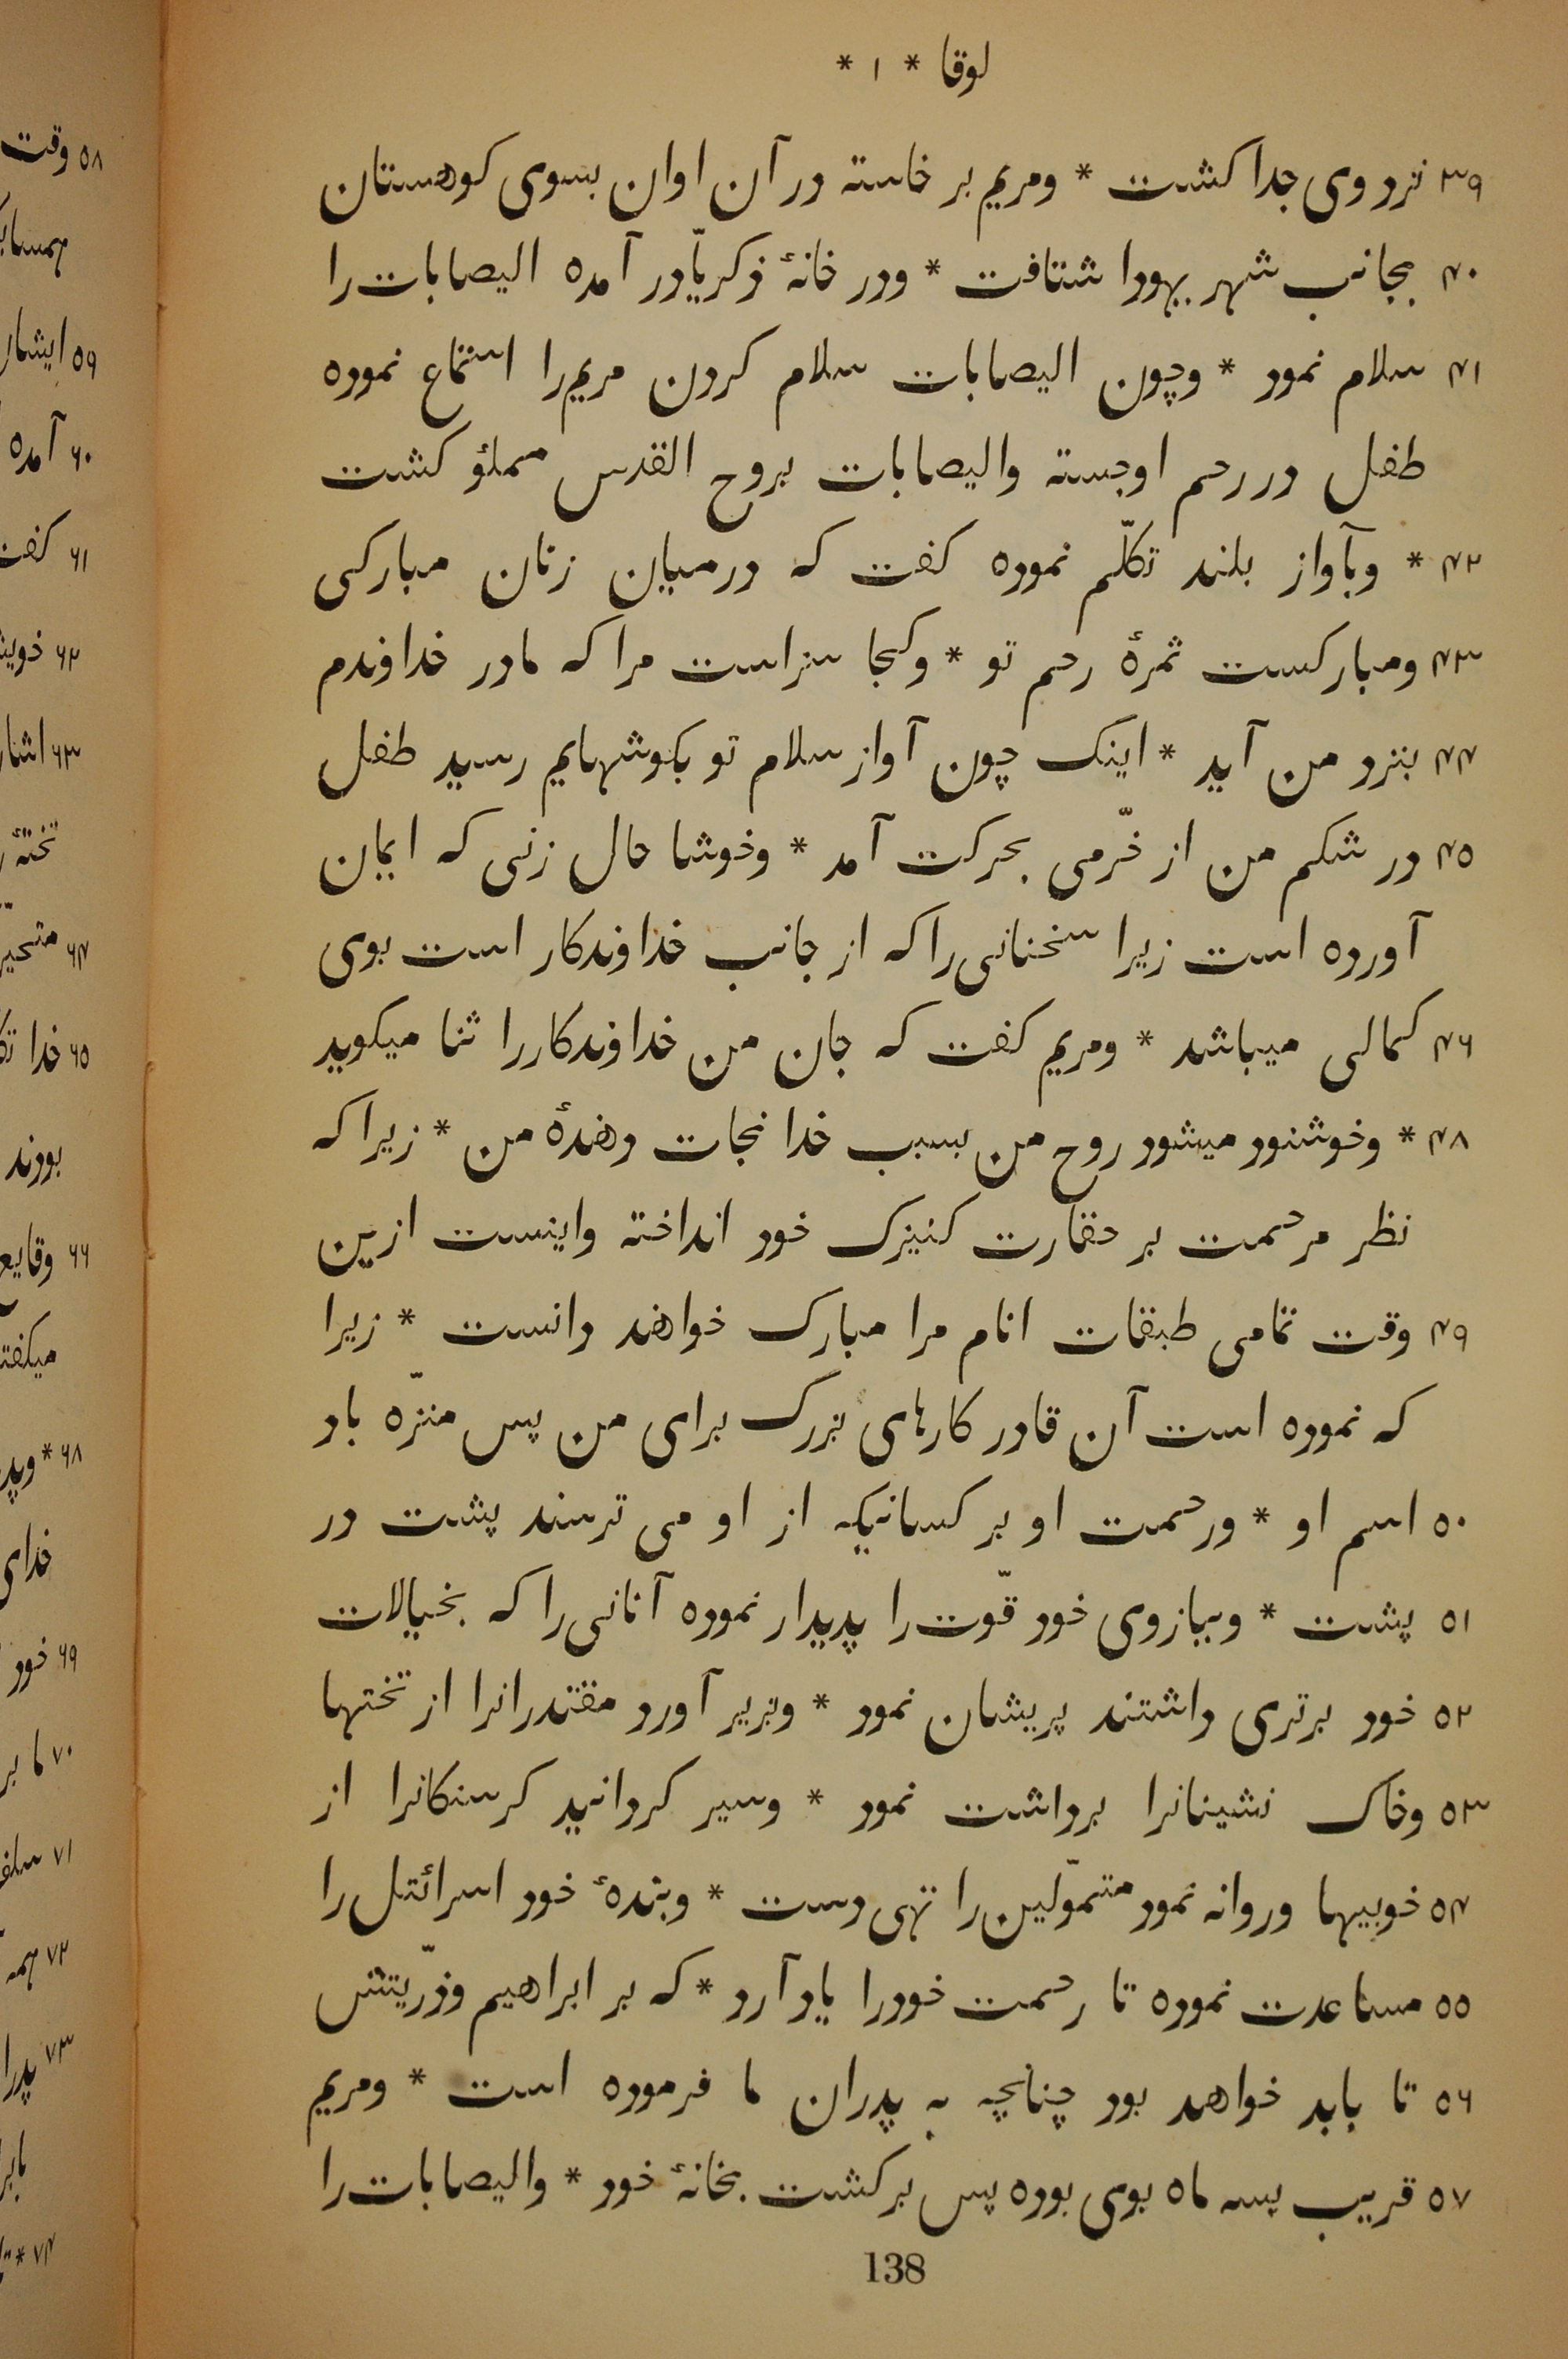 لوقا * ۱ *
۳۹ نزد وی جدا کشت * ومریم بر خاسته در آن اوان بسوی کوهستان
۴۰ بجانب شهر یهودا شتافت * ودر خانهٔ ذکریّا در آمده الیصابات را
۴۱ سلام نمود * وچون الیصابات سلام کردن مریم را استماع نموده
طفل در رحم او جسته والیصابات بروح القدس مملؤ کشت
۴۲ * وبآواز بلند تکلّم نموده کفت که در میان زنان مبارکی
۴۳ ومبارکست ثمرهٔ رحم تو * وکجا سزاست مرا که مادر خداوندم
۴۴ بنزد من آید * اینک چون آواز سلام تو بکوشهایم رسید طفل
۴۵ در شکم من از خرّمی بحرکت آمد * وخوشا حال زنی که ایمان
آورده است زیرا سخنانی را که از جانب خداوندکار است بوی
۴۶ کمالی میباشد * ومریم کفت که جان من خداوندکار را ثنا میکوید
۴۸ * وخوشنود میشود روح من بسبب خدا نجات دهندهٔ من * زیرا که
نظر مرحمت بر حقارت کنیزک خود انداخته واینست ازین
۴۹ وقت تمامی طبقات انام مرا مبارک خواهند دانست * زیرا
که نموده است آن قادر کارهای بزرک برای من پس منزّه باد
۵۰ اسم او * ورحمت او بر کسانیکه از او می ترسند پشت در
۵۱ پشت * وببازوی خود قوّت را پدیدار نموده آنانی را که بخیالات
۵۲ خود برتری داشتند پریشان نمود * وبزیر آورد مقتدرانرا از تختها
۵۳ وخاک نشینانرا برداشت نمود * وسیر کردانید کرسنکانرا از
۵۴ خوبیها وروانه نمود متموّلین را تهی دست * وبندهٔ خود اسرائیل را
۵۵ مساعدت نموده تا رحمت خودرا یاد آرد * که بر ابراهیم وذرّیتش
۵۶ تا بابد خواهد بود چنانچه به پدران ما فرموده است * ومریم
۵۷ قریب بسه ماه بوی بوده پس برکشت بخانهٔ خود * والیصابات را
138
۵۸ وقت
۵۹
۶۰ آمده
۶۱
۶۲
۶۳
۶۴
۶۵ خدا
بودند
۶۶ وقایع
۶۸ *
خدای
۶۹ خود
۷۰ ما
۷۱
۷۲
۷۳
۷۴ *